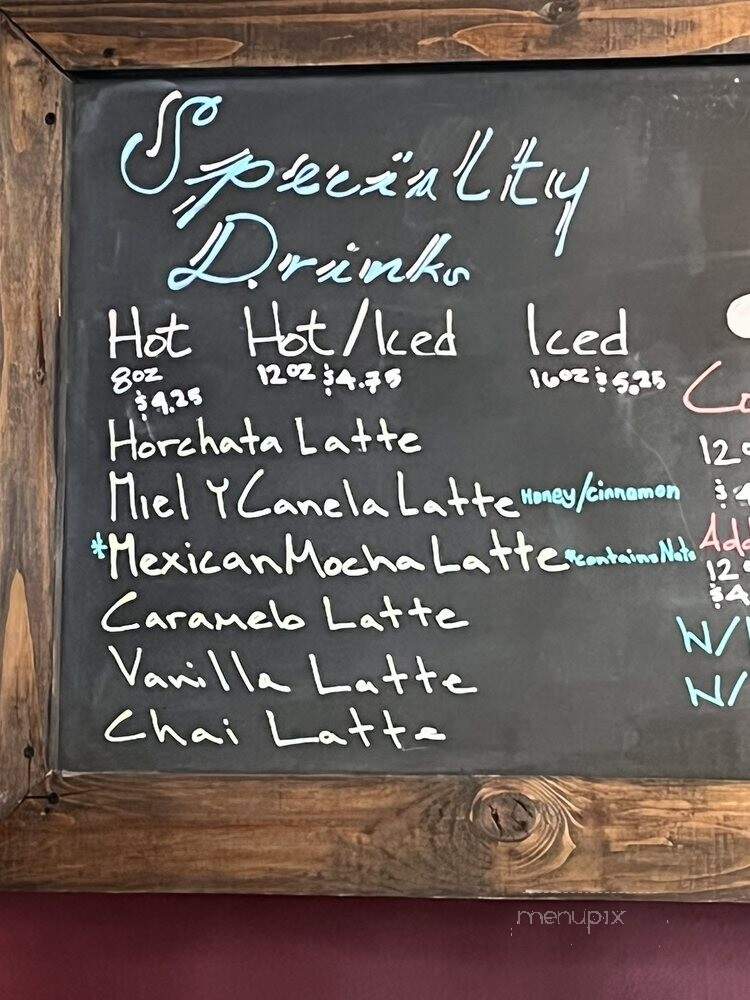 Speciality
Drinks
Hot Hot/Iced Iced
8oz 12oz $4.75 16oz $5.25
$4.25
Horchata Latte
Miel Y Canela Latte Honey/cinnamon
*Mexican Mocha Latte *contains Nuts
Caramelo Latte
Vanilla Latte
Chai Latte
12
$4
12
$4.
W/
W/
menupix